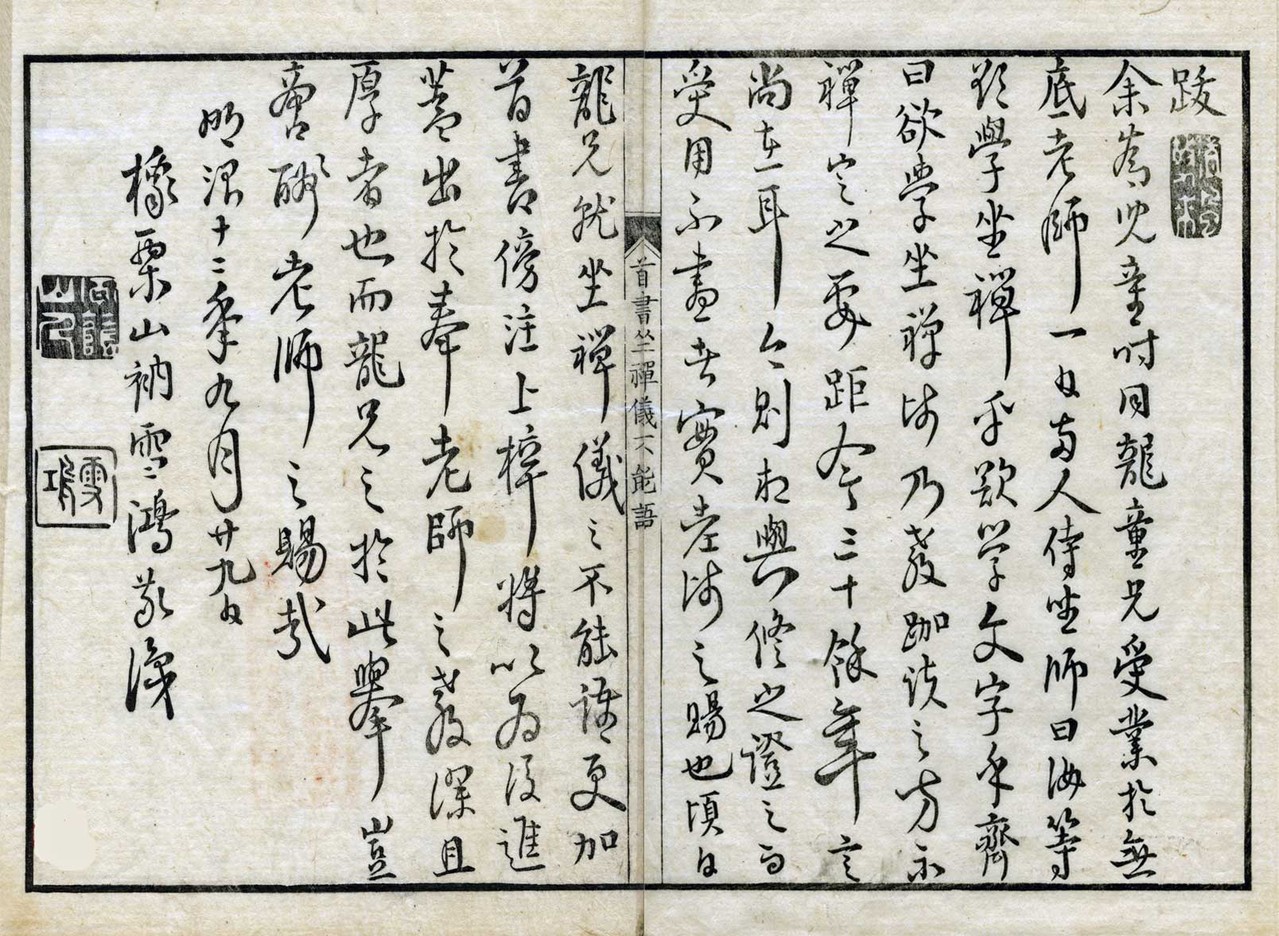 跋
余為兒童時同龍童兄受業於無
底老師一日両人侍坐師曰汝等
欲學坐禪乎欲学文字乎齊
曰欲学坐禅師乃教跏趺之方示
禅定之要距今三十餘年言
尚在耳今則相與修之證之而
受用不盡者實老師之賜也頃日
首書坐禪儀不能語
龍兄就坐禅儀之不能語更加
首書傍注上梓将以為後進
蓋出於奉老師之教深且
厚者也而龍兄之於此舉豈
啻酬老師之賜哉
明治十二年九月廿九日
橡栗山衲雪鴻敬識
雪鴻